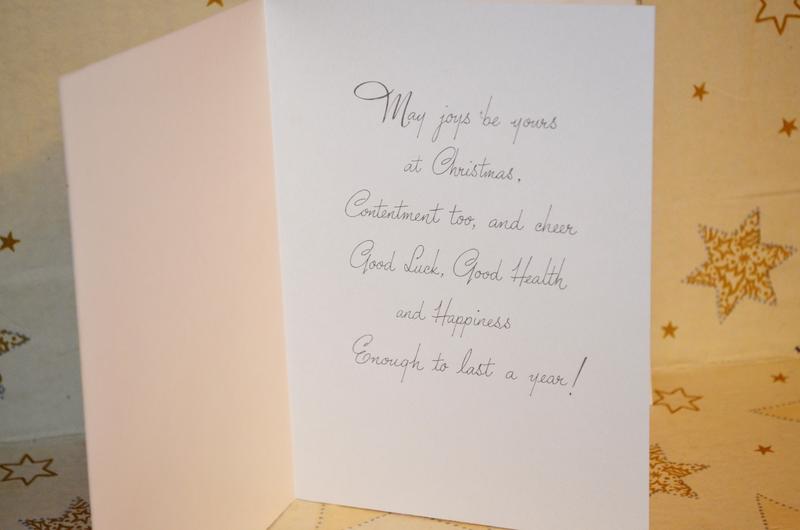 May joys be yours
at Christmas,
Contentment too, and cheer
Good Luck, Good Health
and Happiness
Enough to last a year!